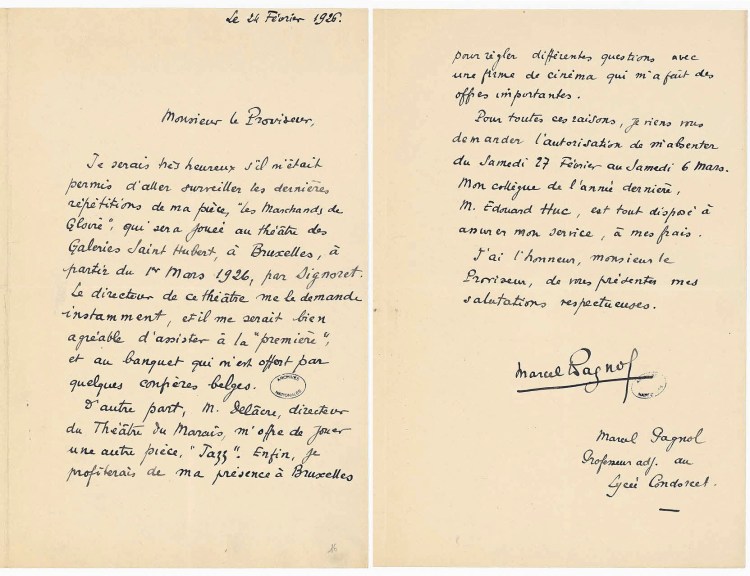 Le 24 Février 1926.
Monsieur le Proviseur,
Je serais très heureux s'il m'était
permis d'aller surveiller les dernières
répétitions de ma pièce, "les Marchands de
Gloire", qui sera jouée au théâtre des
Galeries Saint Hubert, à Bruxelles, à
partir du 1er Mars 1926, par Signoret.
Le directeur de ce théâtre me le demande
instamment, et il me serait bien
agréable d'assister à la "première",
et au banquet qui m'est offert par
quelques confrères belges.
D'autre part, M. Delacre, directeur
du Théâtre du Marais, m'offre de jouer
une autre pièce, "Jazz". Enfin, je
profiterais de ma présence à Bruxelles
pour règler différentes questions avec
une firme de cinéma qui m'a fait des
offres importantes.
Pour toutes ces raisons, je viens vous
demander l'autorisation de m'absenter
du Samedi 27 Février au Samedi 6 Mars.
Mon collègue de l'année dernière,
M. Edouard Huc, est tout disposé à
assurer mon service, à mes frais.
J'ai l'honneur, monsieur le
Proviseur, de vous présenter mes
salutations respectueuses.
Marcel Pagnol
Marcel Pagnol
Professeur adj. au
Lycée Condorcet.